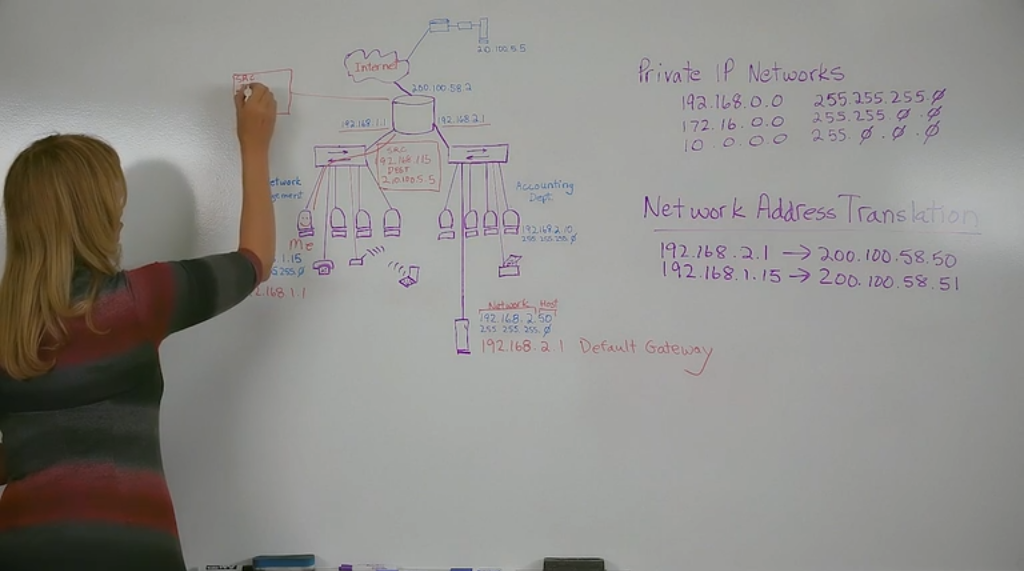 20.100.5.5
Internet
200.100.58.2
SRC
192.168.1.1
192.168.2.1
SRC
92.168.115
DEST
210.100.5.5
etwork
gement
Accounting
Dept.
192.168.2.10
255.255.255.0
Me
1.15
255.0
.168.1.1
Network Host
192.168.2 50
255.255.255.0
192.168.2.1 Default Gateway
Private IP Networks
192.168.0.0 255.255.255.0
172.16.0.0 255.255.0.0
10.0.0.0 255.0.0.0
Network Address Translation
192.168.2.1 → 200.100.58.50
192.168.1.15 → 200.100.58.51